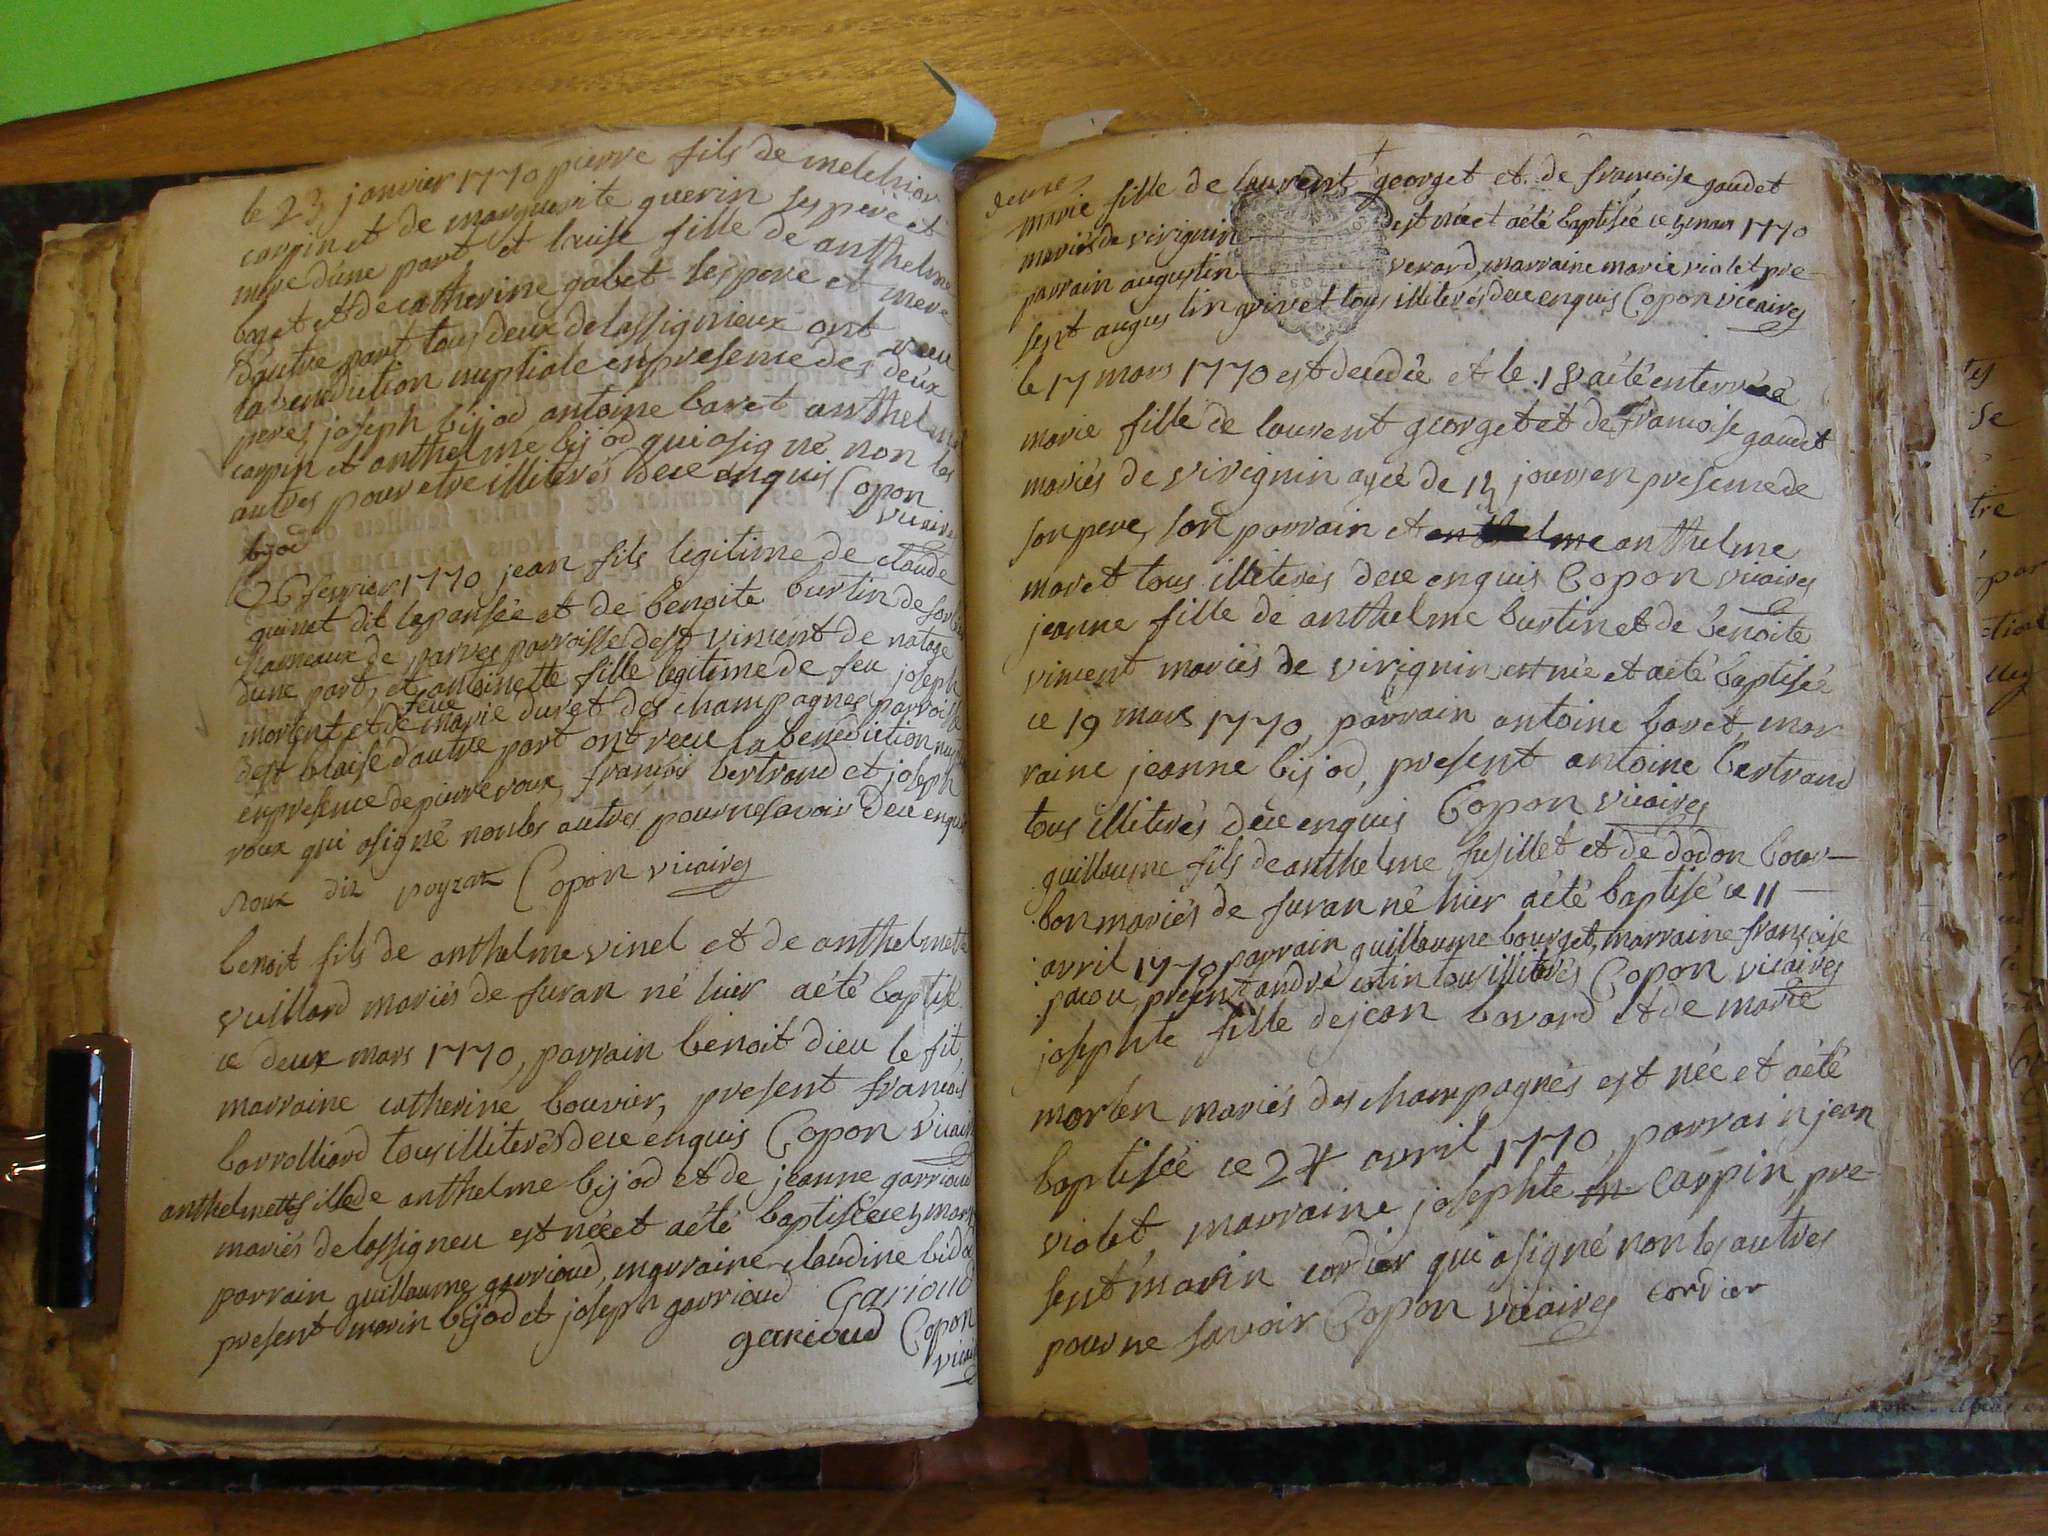 le 23 janvier 1770 pierre fils de melchior
carpin et de marguerite guerin ses pere et
mere d'une part et louise fille de anthelme
baret et de catherine gabet ses pere et mere
d'autre part tous deux de lassignieux ont receu
la benediction nuptiale en presence des deux
peres, joseph bijod antoine baret anthelme
carpin et anthelme bijod qui a signé non les
autres pour etre illiterés deue enquis Copon
vicaire
bijod
26 fevrier 1770 jean fils legitime de claude
guinet dit lapensée et de benoite burtin de
hameaux de parves parroisse de st vincent de natage
d'une part, et antoinette fille legitime de feu joseph
morten et de feue marie duret des champagnes parroisse
de st blaise d'autre part ont receu la benediction
en presence de pierre roux, françois bertrand et joseph
roux qui a signé non les autres pour ne savoir deue enquis
roux dit Copon vicaires
benoit fils de anthelme vinel et de anthelmette
vuillard mariés de furan né hier a été baptisé
ce deux mars 1770, parrain benoit dieu le fit,
marraine catherine bouvier, present françois
barrolliard tous illiterés deue enquis Copon vicaire
anthelmette fille de anthelme bijod et de jeanne garrioud
mariés de lassigneu est née et a été baptisée ce 5 mars
parrain guillaume garrioud, marraine claudine
present marin bijod et joseph garrioud Garioud
garioud Copon
vicaire
marie fille de laurent georget et de francoise gaudet
mariés de virignin est née et a été baptisée ce 5 mars 1770
parrain augustin verard, marraine marie violet pre-
sent augustin grivet tous illiterés deue enquis Copon vicaires
le 17 mars 1770 est decedée et le 18 a été enterrée
marie fille de laurent georget et de francoise gaudet
mariés de virignin agée de jours en presence de
son pere, son parrain et anthelme anthelme
maret tous illiterés deue enquis Copon vicaires
jeanne fille de anthelme burtin et de benoite
vincent mariés de virignin est née et a été baptisée
ce 19 mars 1770, parrain antoine baret, mar
raine jeanne bijod, present antoine bertrand
tous illiterés deue enquis Copon vicaires
guillaume fils de anthelme fusillet et de dodon bour-
bon mariés de furan né hier a été baptisé ce 11
avril 1770 parrain guillaume bourget, marraine françoise
pacou, present andré cotin tous illiterés Copon vicaires
josephte fille de jean bavard et de marie
morten mariés des champagnes est née et a été
baptisée ce 24 avril 1770, parrain jean
violet marraine josephte carpin, pre-
sent marin cordier qui a signé non les autres
pour ne savoir Copon vicaires cordier